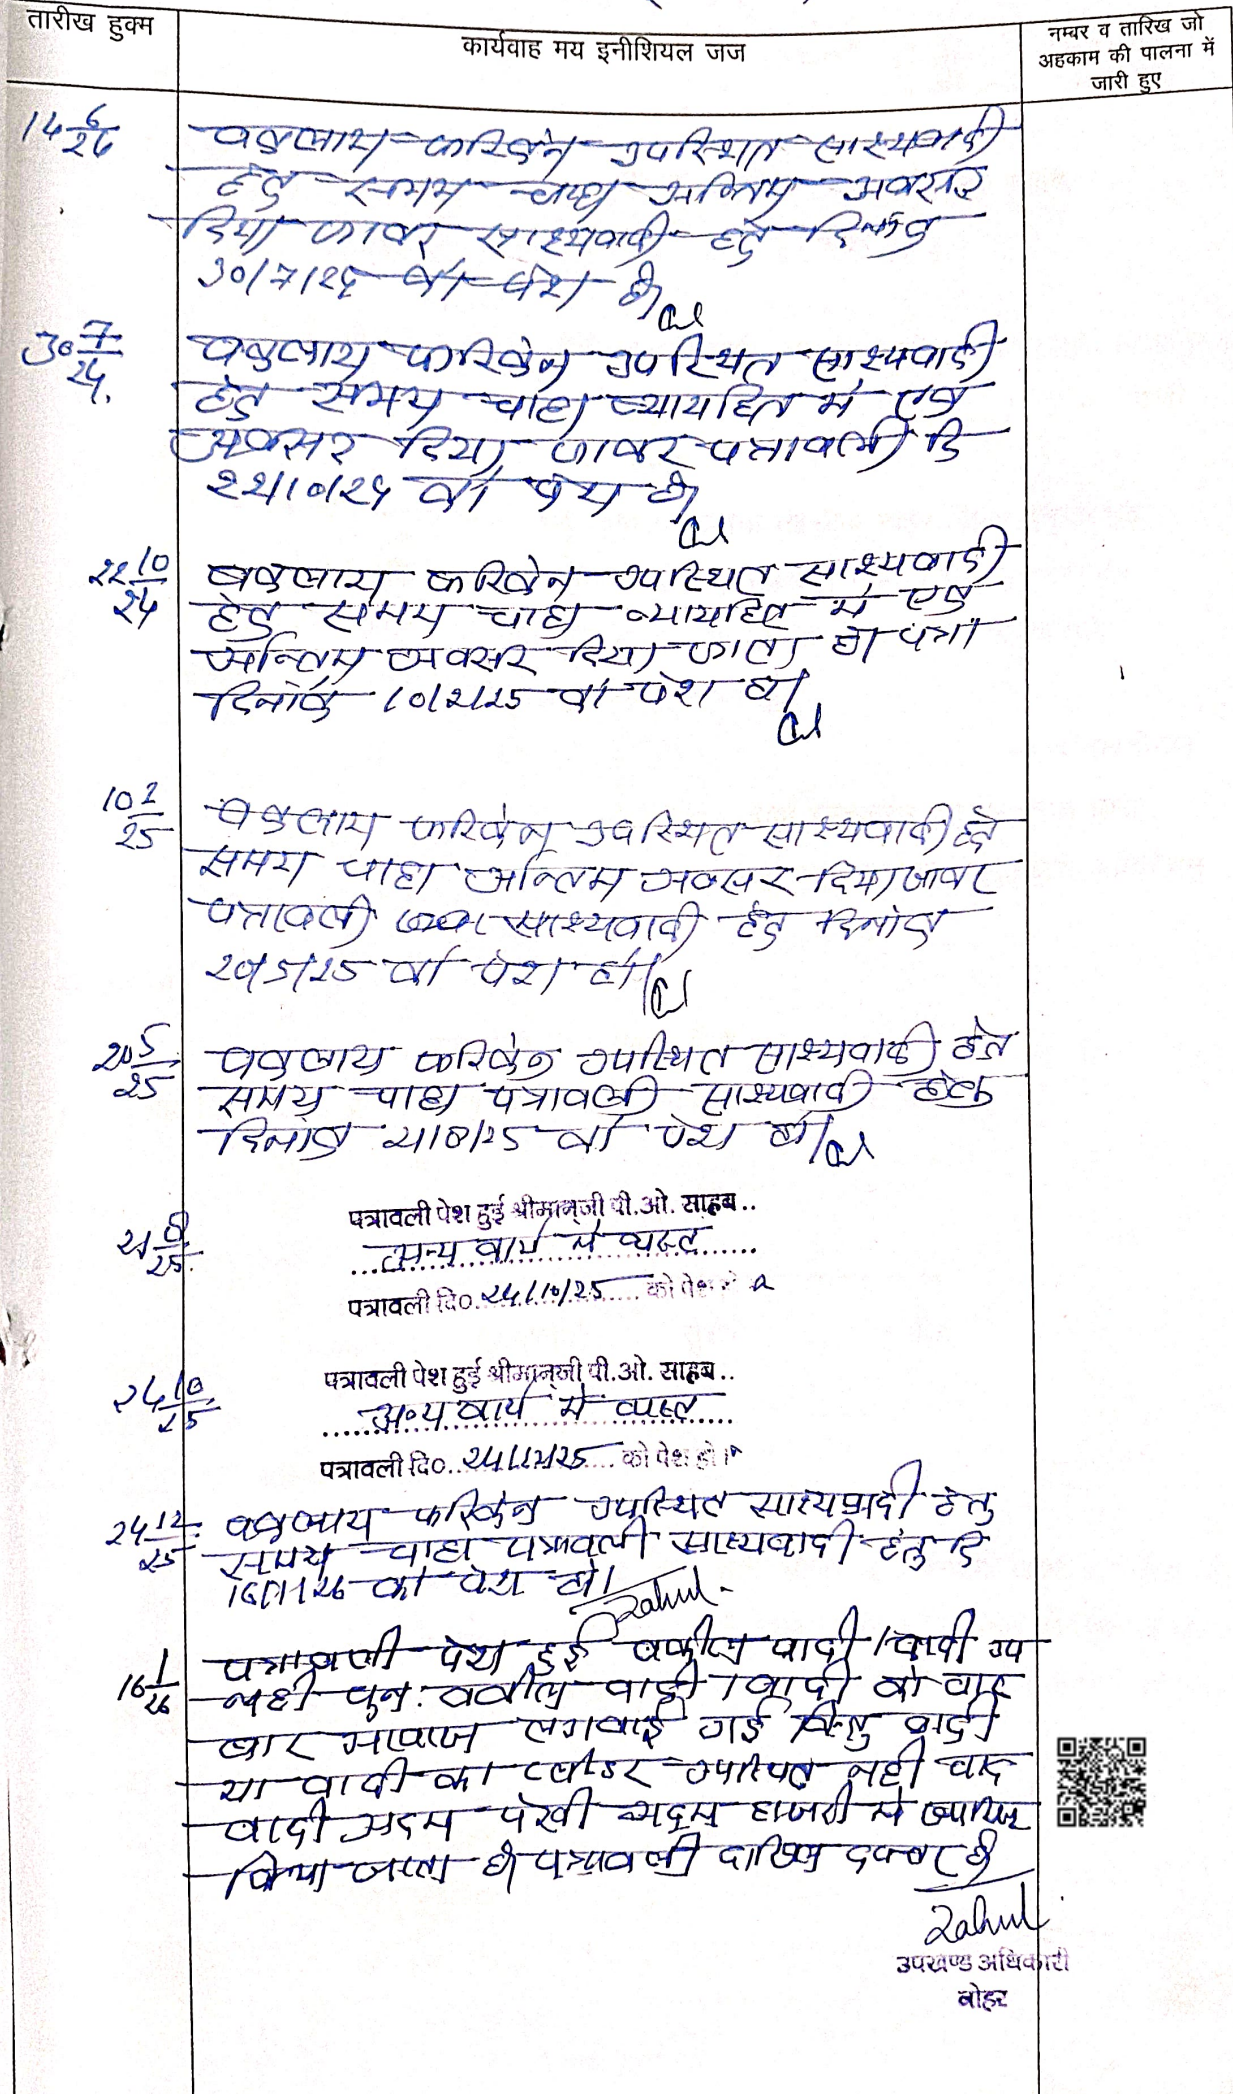 तारीख हुक्म
कार्यवाह मय इनीशियल जज
नम्बर व तारिख जो
अहकाम की पालना में
जारी हुए
14/6/24
वकुलाय फरिकेन उपस्थित साक्ष्यवादी
हेतु समय चाहा अन्तिम अवसर
दिया जाकर साक्ष्यवादी हेतु दिनांक
30/7/24 को पेश हो
30/7/24.
वकुलाय फरिकेन उपस्थित साक्ष्यवादी
हेतु समय चाहा न्यायहित में एक
अवसर दिया जाकर पत्रावली दि
22/10/24 को पेश हो
22/10/24
वकुलाय फरिकेन उपस्थित साक्ष्यवादी
हेतु समय चाहा न्यायहित में एक
अन्तिम अवसर दिया जाता है पत्रा
दिनांक 10/2/25 को पेश हो
10/2/25
वकुलाय फरिकेन उपस्थित साक्ष्यवादी हेतु
समय चाहा अन्तिम अवसर दिया जाकर
पत्रावली साक्ष्यवादी हेतु दिनांक
20/5/25 को पेश हो
20/5/25
वकुलाय फरिकेन उपस्थित साक्ष्यवादी हेतु
समय चाहा पत्रावली साक्ष्यवादी हेतु
दिनांक 21/8/25 को पेश हो
21/8/25
पत्रावली पेश हुई श्रीमान्जी पी.ओ. साहब..
अन्य कार्य में व्यस्त
पत्रावली दि० 24/10/25 को पेश हो
24/10/25
पत्रावली पेश हुई श्रीमान्जी पी.ओ. साहब..
अन्य कार्य में व्यस्त
पत्रावली दि० 24/12/25 को पेश हो।
24/12/25
वकुलाय फरिकेन उपस्थित साक्ष्यवादी हेतु
समय चाहा पत्रावली साक्ष्यवादी हेतु दि
16/1/26 को पेश हो।
Rahul
16/1/26
पत्रावली पेश हुई वकील वादी/वादी उप
नही पुन: वकील वादी/वादी को बार
बार आवाज लगवाई गई किन्तु वादी
या वादी का प्लीडर उपस्थित नही वाद
वादी अदम पेरवी अदम हाजरी मे खारिज
किया जाता है पत्रावली दाखिल दफ्तर हो
Rahul
उपखण्ड अधिकारी